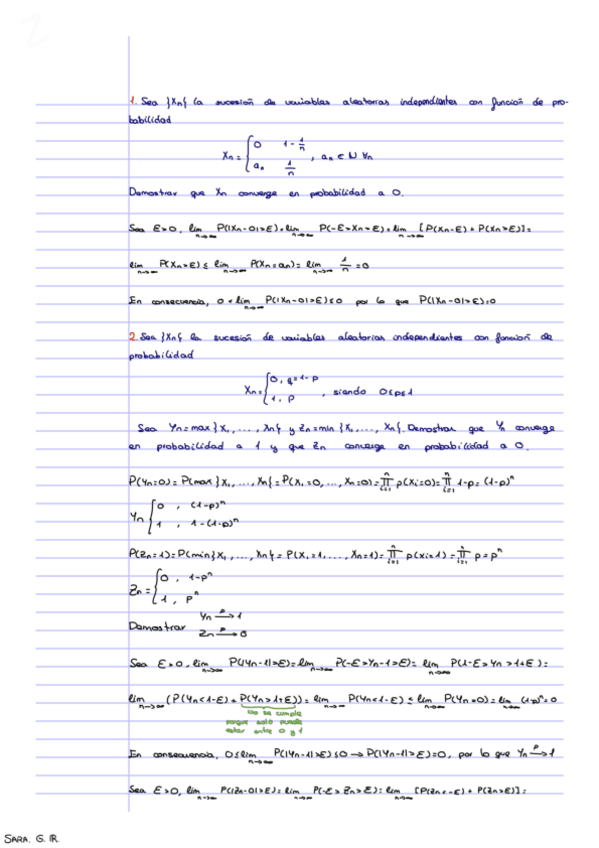 1. Sea }Xn{ la sucesión de variables aleatorias independientes con función de pro-
babilidad
Xn = { 0 1 - 1/n
an 1/n , an ∈ N ∀n
Demostrar que Xn converge en probabilidad a 0.
Sea Ɛ>0, lim n→∞ P(|Xn-0|>Ɛ) = lim n→∞ P(-Ɛ>Xn>Ɛ) = lim n→∞ [P(Xn-Ɛ) + P(Xn>Ɛ)] =
lim n→∞ P(Xn>Ɛ) ≤ lim n→∞ P(Xn=an) = lim n→∞ 1/n = 0
En consecuencia, 0 < lim n→∞ P(|Xn-0|>Ɛ) ≤ 0 por lo que P(|Xn-0|>Ɛ)=0
2. Sea }Xn{ la sucesión de variables aleatorias independientes con función de
probabilidad
Xn = { 0, q=1-p
1, p , siendo 0≤p≤1
Sea Yn = max }X1, ..., Xn{ y Zn = min }X1, ..., Xn{. Demostrar que Yn converge
en probabilidad a 1 y que Zn converge en probabilidad a 0.
P(Yn=0) = P(max }X1, ..., Xn{ = P(X1=0, ..., Xn=0) = ∏ⁿi=1 p(Xi=0) = ∏ⁿi=1 1-p = (1-p)ⁿ
Yn { 0 , (1-p)ⁿ
1 , 1-(1-p)ⁿ
P(Zn=1) = P(min}X1, ..., Xn{ = P(X1=1, ..., Xn=1) = ∏ⁿi=1 p(Xi=1) = ∏ⁿi=1 p = pⁿ
Zn = { 0 , 1-pⁿ
1 , pⁿ
Demostrar Yn →ᵖ 1
Zn →ᵖ 0
Sea Ɛ>0, lim n→∞ P(|Yn-1|>Ɛ) = lim n→∞ P(-Ɛ>Yn-1>Ɛ) = lim n→∞ P(1-Ɛ>Yn>1+Ɛ) =
lim n→∞ (P(Yn<1-Ɛ) + P(Yn>1+Ɛ)) = lim n→∞ P(Yn<1-Ɛ) ≤ lim n→∞ P(Yn=0) = lim n→∞ (1-p)ⁿ = 0
no se cumple
porque solo puede
estar entre 0 y 1
En consecuencia, 0 ≤ lim n→∞ P(|Yn-1|>Ɛ) ≤ 0 → P(|Yn-1|>Ɛ)=0, por lo que Yn →ᵖ 1
Sea Ɛ>0, lim n→∞ P(|Zn-0|>Ɛ) = lim n→∞ P(-Ɛ>Zn>Ɛ) = lim n→∞ [P(Zn<-Ɛ) + P(Zn>Ɛ)] =
SARA. G. IR.